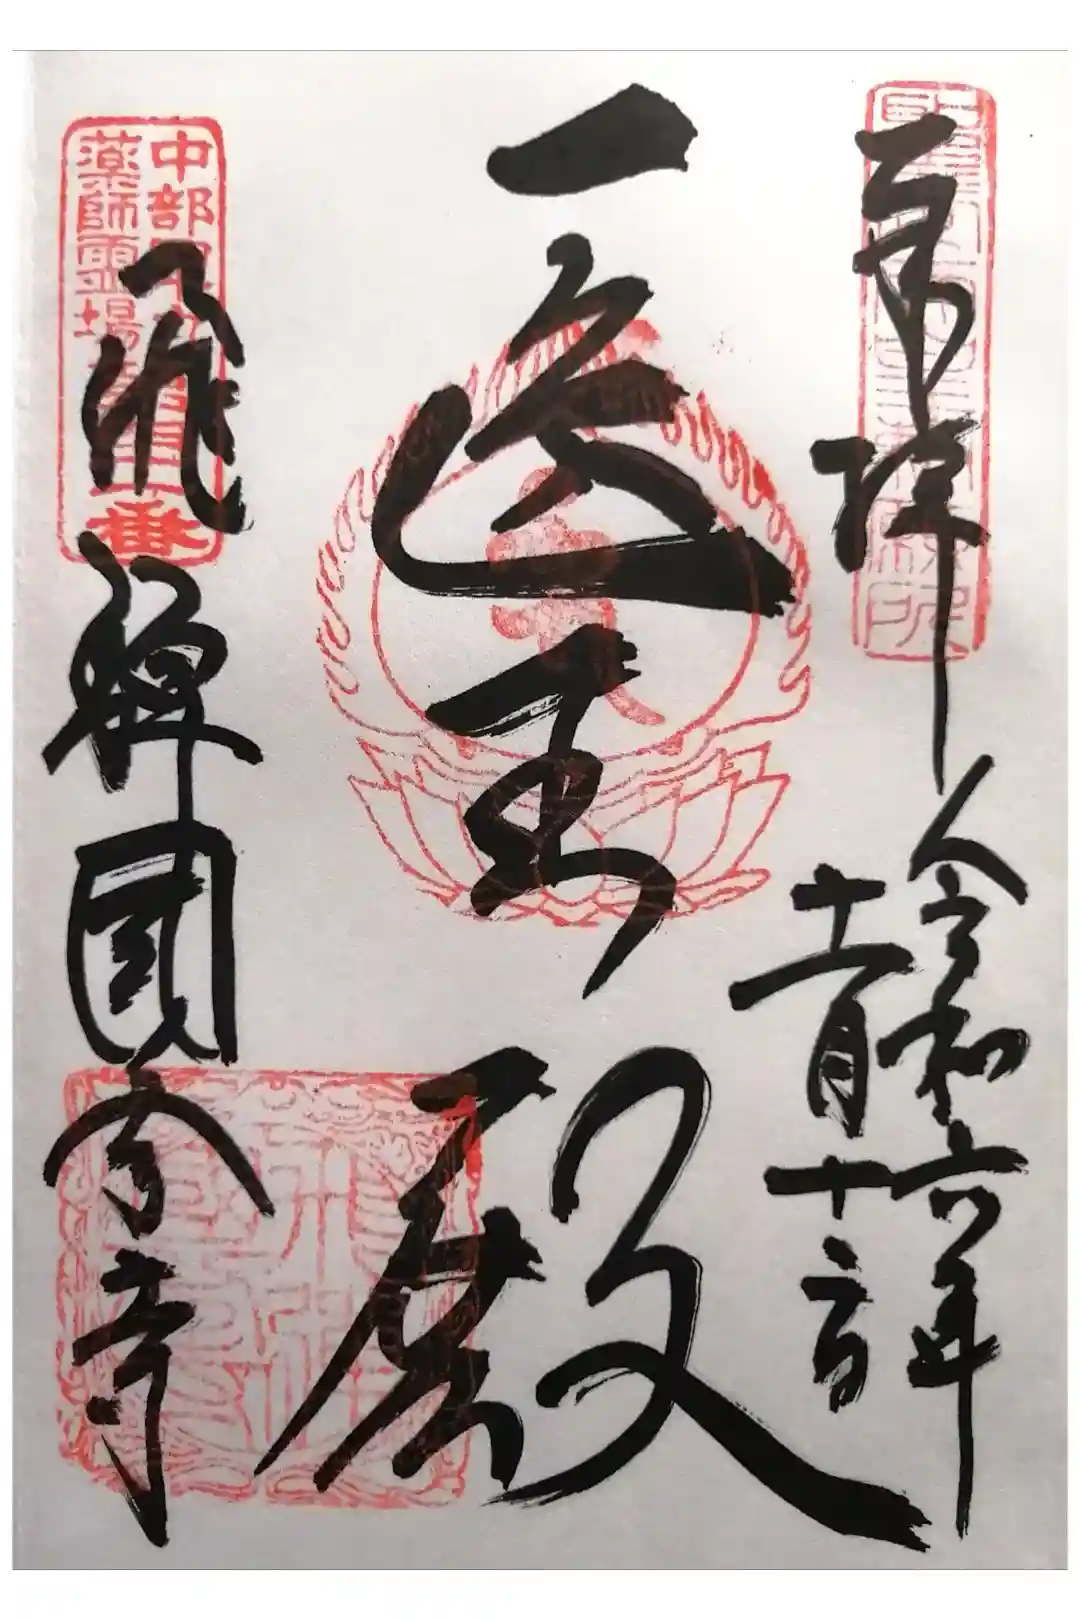 奉拝
令和六年
十一月十二日
医王殿
中部
薬師霊場
番
飛騨國分寺